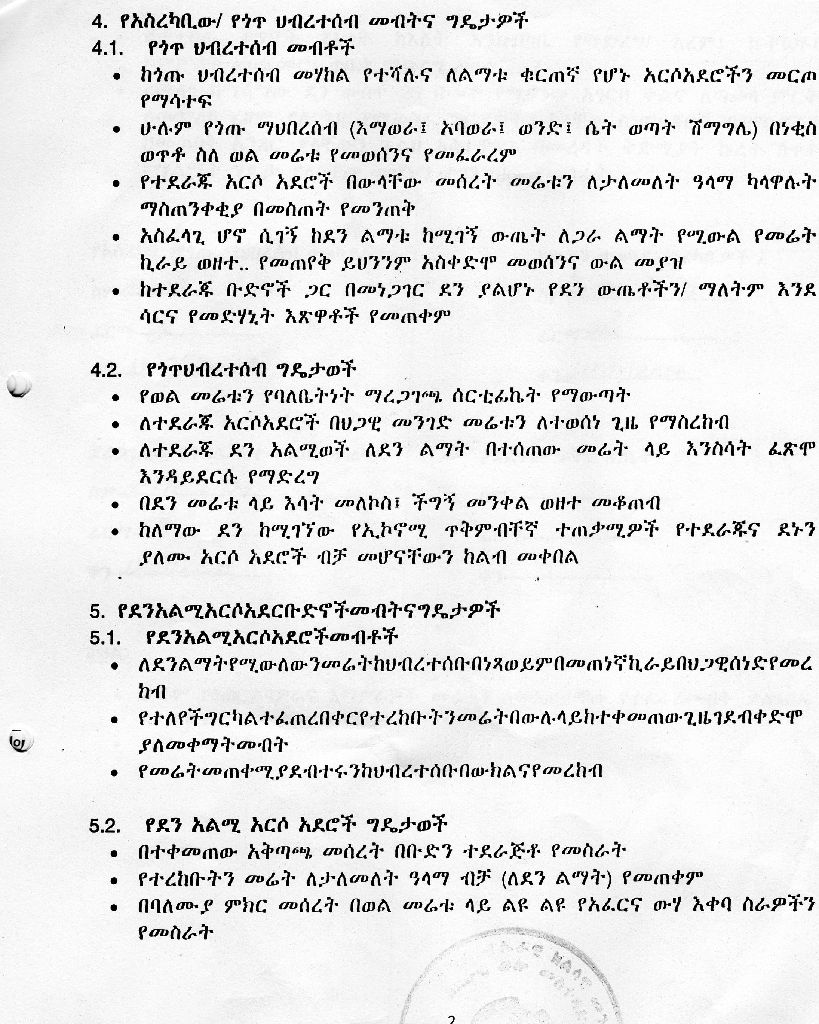 4. የአስረካቢው/ የጎጥ ህብረተሰብ መብትና ግዴታዎች
4.1. የጎጥ ህብረተሰብ መብቶች
• ከጎጡ ህብረተሰብ መሃከል የተሻሉና ለልማቱ ቁርጠኛ የሆኑ አርሶአደሮችን መርጦ
የማሳተፍ
• ሁሉም የጎጡ ማህበረሰብ (እማወራ፤ አባወራ፤ ወንድ፤ ሴት ወጣት ሽማግሌ) በነቂስ
ወጥቶ ስለ ወል መሬቱ የመወሰንና የመፈራረም
• የተደራጁ አርሶ አደሮች በውላቸው መሰረት መሬቱን ለታለመለት ዓላማ ካላዋሉት
ማስጠንቀቂያ በመስጠት የመንጠት
• አስፈላጊ ሆኖ ሲገኝ ከደን ልማቱ ከሚገኝ ውጤት ለጋራ ልማት የሚውል የመሬት
ኪራይ ወዘተ.. የመጠየቅ ይህንንም አስቀድሞ መወሰንና ውል መያዝ
• ከተደራጁ ቡድኖች ጋር በመነጋገር ደን ያልሆኑ የደን ውጤቶችን/ ማለትም እንደ
ሳርና የመድሃኒት እጽዋቶች የመጠቀም
4.2. የጎጥህብረተሰብ ግዴታወች
• የወል መሬቱን የባለቤትነት ማረጋገጫ ሰርቲፊኬት የማውጣት
• ለተደራጁ አርሶአደሮች በህጋዊ መንገድ መሬቱን ለተወሰነ ጊዜ የማስረከብ
• ለተደራጁ ደን አልሚወች ለደን ልማት በተሰጠው መሬት ላይ እንስሳት ፈጽሞ
እንዳይደርሱ የማድረግ
• በደን መሬቱ ላይ እሳት መለኮስ፣ ችግኝ መንቀል ወዘተ መቆጠብ
• ከለማው ደን ከሚገኘው የኢኮኖሚ ጥቅምብቸኛ ተጠቃሚዎች የተደራጁና ደኑን
ያለሙ አርሶ አደሮች ብቻ መሆናቸውን ከልብ መቀበል
5. የደንአልሚአርሶአደርቡድኖችመብትናግዴታዎች
5.1. የደንአልሚአርሶአደሮችመብቶች
• ለደንልማትየሚውለውንመሬትከህብረተሰቡበነጻወይምበመጠነኛኪራይበህጋዊሰነድየመረ
ከብ
• የተለየችግርካልተፈጠረበቀርየተረከቡትንመሬትበውሉላይከተቀመጠውጊዜገደብቀድሞ
ያለመቀማትመብት
• የመሬትመጠቀሚያደብተሩንከህብረተሰቡበውክልናየመረከብ
5.2. የደን አልሚ አርሶ አደሮች ግዴታወች
• በተቀመጠው አቅጣጫ መሰረት በቡድን ተደራጅቶ የመስራት
• የተረከቡትን መሬት ለታለመለት ዓላማ ብቻ (ለደን ልማት) የመጠቀም
• በባለሙያ ምክር መሰረት በወል መሬቱ ላይ ልዩ ልዩ የአፈርና ውሃ እቀባ ስራዎችን
የመስራት
2